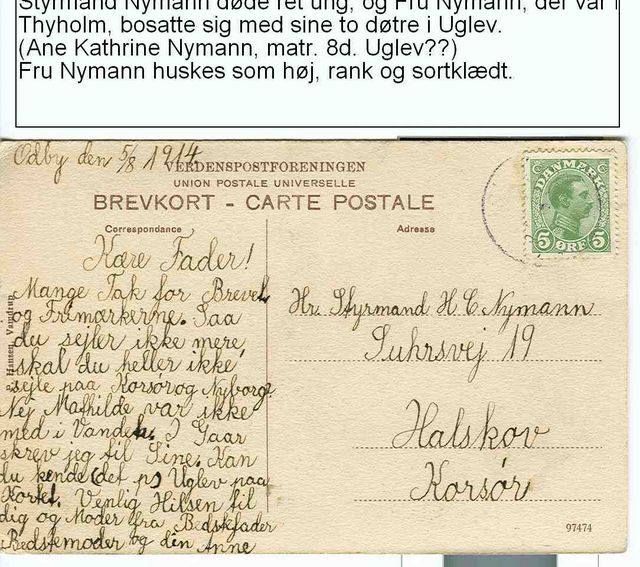 Styrmand Nymann døde ret ung, og Fru Nymann, der var i
Thyholm, bosatte sig med sine to døtre i Uglev.
(Ane Kathrine Nymann, matr. 8d. Uglev??)
Fru Nymann huskes som høj, rank og sortklædt.
Odby den 5/8 1914
VERDENSPOSTFORENINGEN
UNION POSTALE UNIVERSELLE
BREVKORT - CARTE POSTALE
Correspondance
Adresse
DANMARK
5 ØRE 5
Kære Fader!
Mange Tak for Brevet
og Frimærkerne. Saa
du sejler ikke mere,
skal du heller ikke
sejle paa Korsør og Nyborg?
Nej Mathilde var ikke
med i Vandet. I Gaar
skrev jeg til Sine. Kan
du kende (det p) Uglev paa
Kortet. Venlig Hilsen til
dig og Moder fra Bedstefader
Bedstemoder og din Anne
Hr. Styrmand H. C. Nymann
Suhrsvej 19
Halskov
Korsør
Hansen, Vamdrup
97474